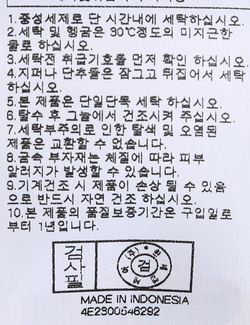 1.중성세제로 단 시간내에 세탁하십시오.
2.세탁 및 헹굼은 30℃정도의 미지근한
물로 하십시오.
3.세탁전 취급기호를 먼저 확인 하십시오.
4.지퍼나 단추들은 잠그고 뒤집어서 세탁
하십시오.
5.본 제품은 단일단독 세탁 하십시오.
6.탈수 후 그늘에서 건조시켜 주십시오.
7.세탁부주의로 인한 탈색 및 오염된
제품은 교환할 수 없습니다.
8.금속 부자재는 체질에 따라 피부
알러지가 발생할 수 있습니다.
9.기계건조 시 제품이 손상 될 수 있음
으로 반드시 자연 건조 하십시오.
10.본 제품의 품질보증기간은 구입일로
부터 1년입니다.
검사필
검
MADE IN INDONESIA
4E2300546292